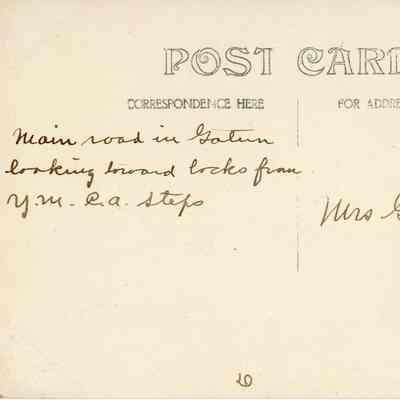 POST CARD
CORRESPONDENCE HERE
FOR ADDRE
Main road in Gatun
looking toward locks from
Y.M.C.A. steps
Mrs G
10